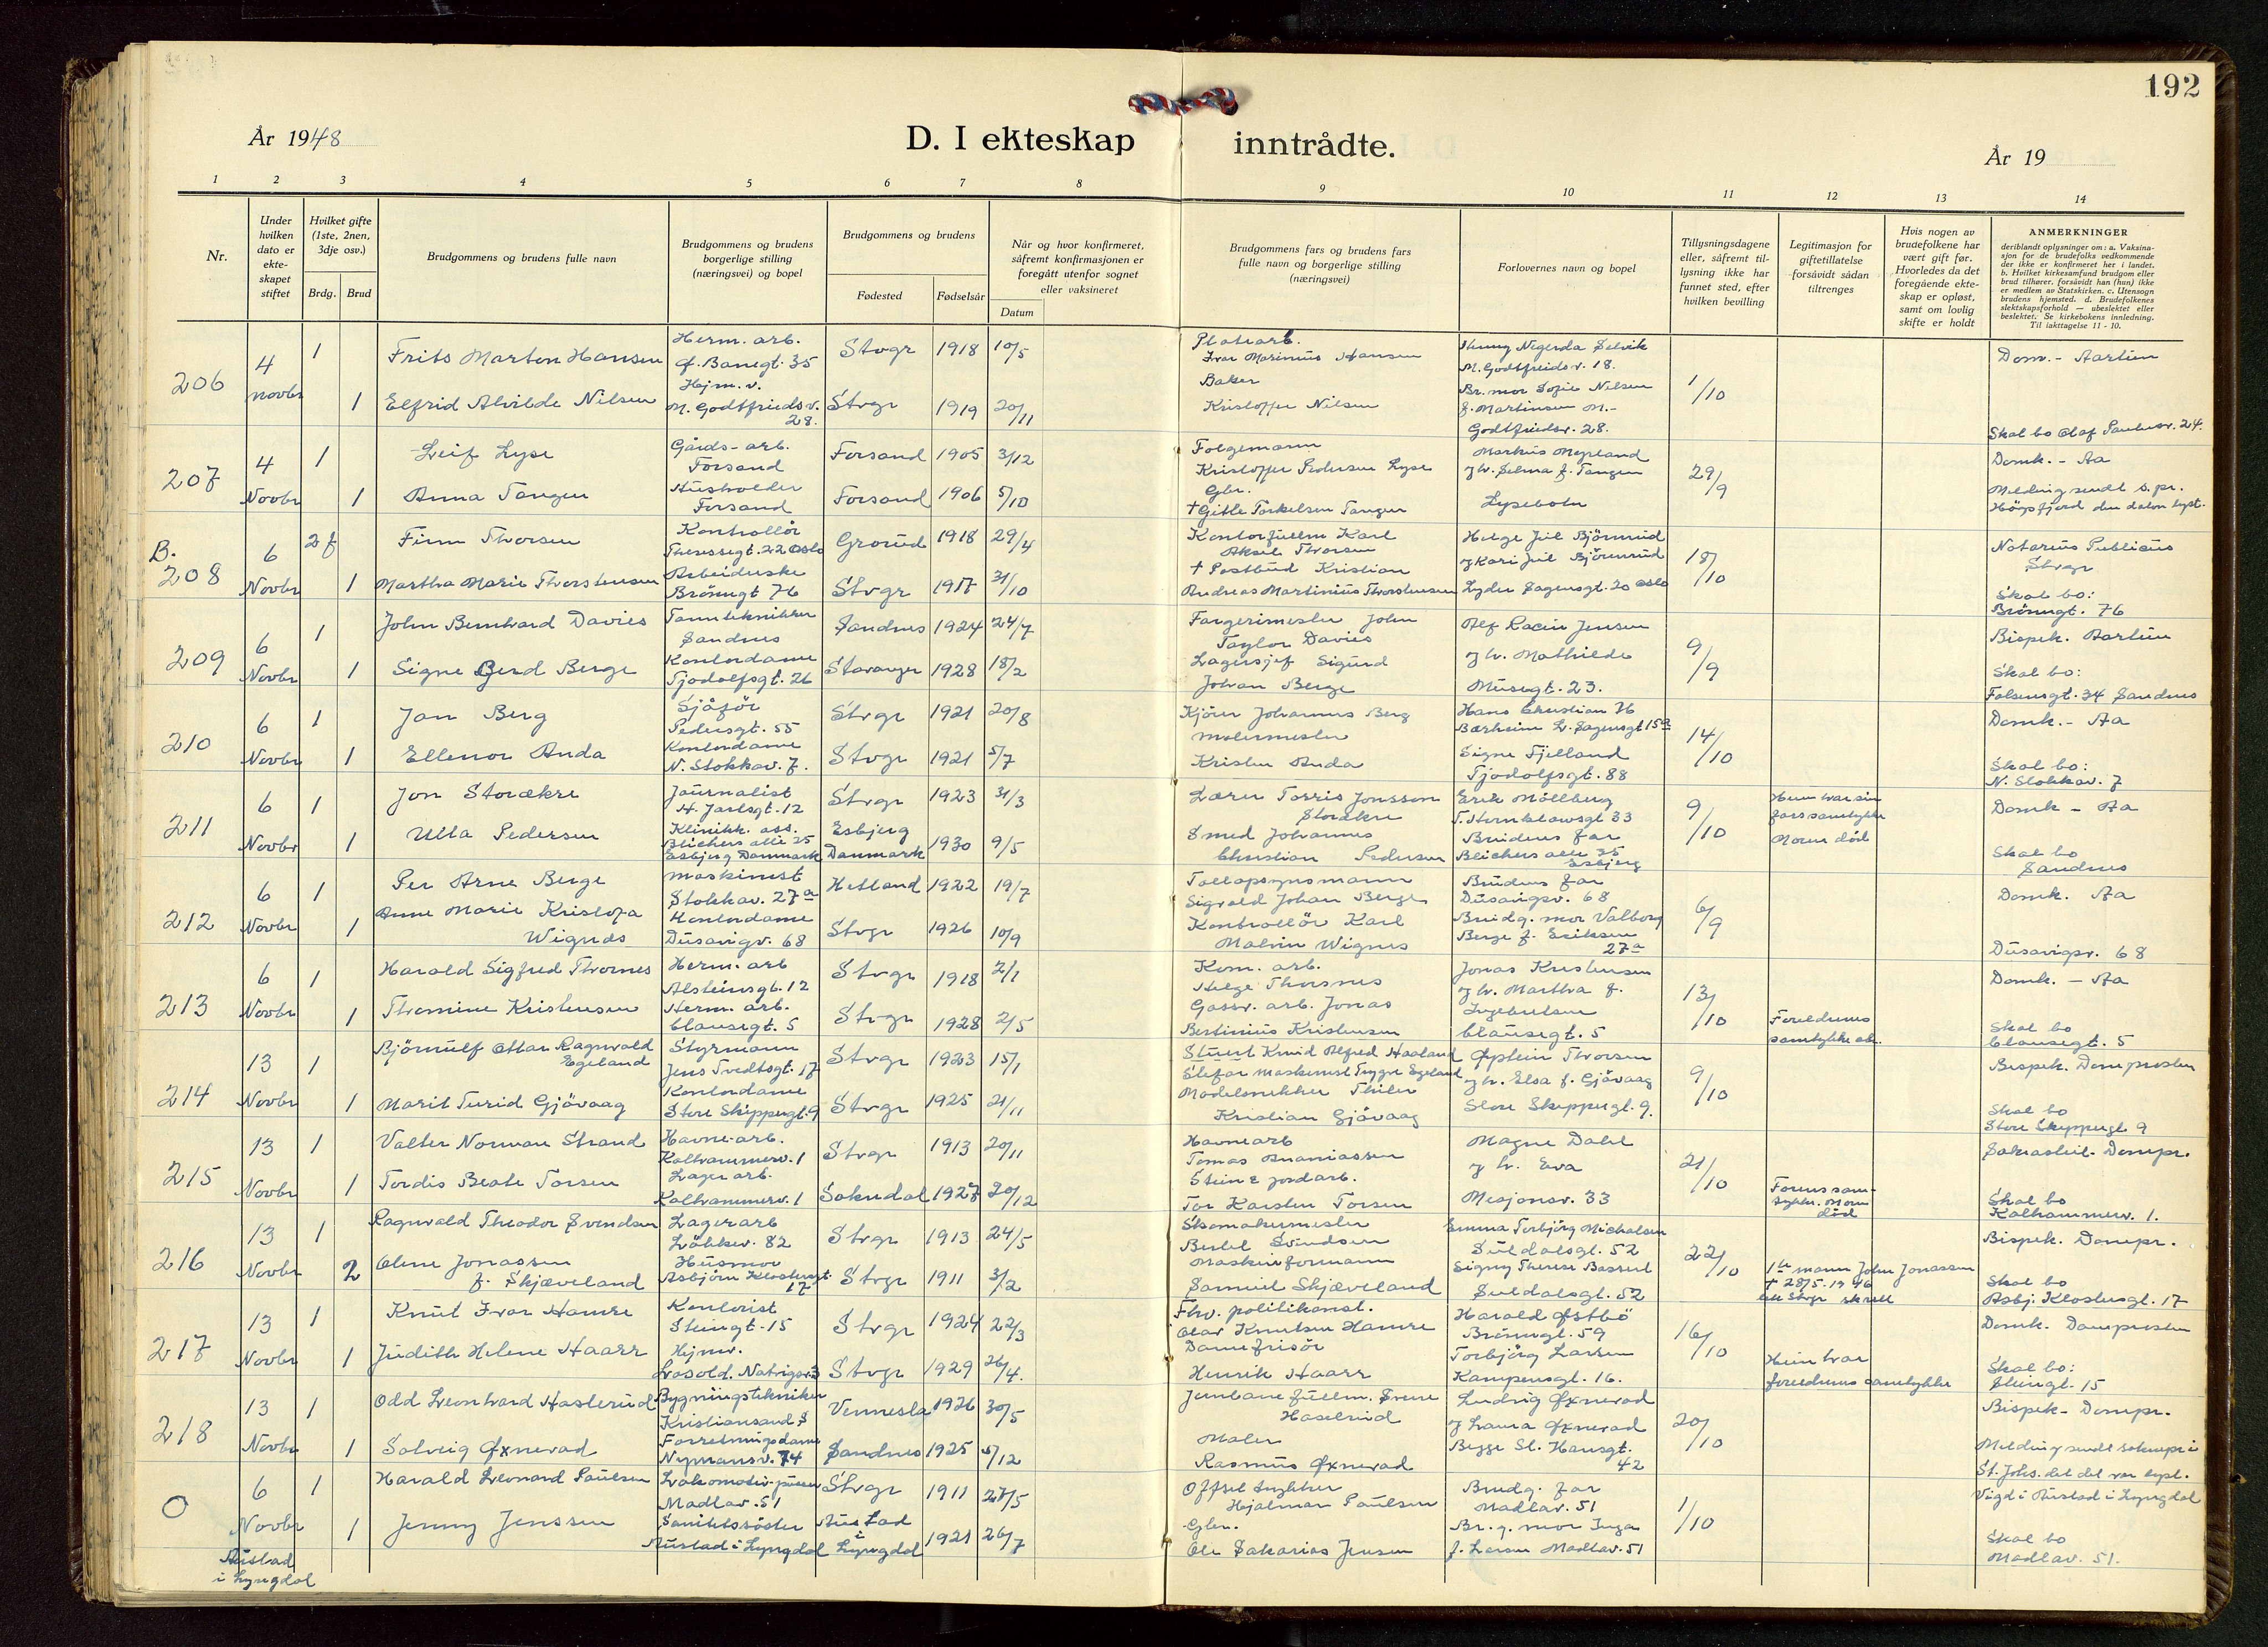 192
År 1948
D. I ekteskap inntrådte.
År 19
1 2 3 4 5 6 7 8 9 10 11 12 13 14
Nr.
Under hvilken dato er ekte-skapet stiftet
Hvilket gifte (1ste, 2nen, 3dje osv.)
Brdg. Brud
Brudgommens og brudens fulle navn
Brudgommens og brudens borgerlige stilling (næringsvei) og bopel
Brudgommens og brudens
Fødested Fødselsår
Når og hvor konfirmeret, såfremt konfirmasjonen er foregått utenfor sognet eller vaksineret
Datum
Brudgommens fars og brudens fars fulle navn og borgerlige stilling (næringsvei)
Forlovernes navn og bopel
Tillysningsdagene eller, såfremt til-lysning ikke har funnet sted, efter hvilken bevilling
Legitimasjon for giftetillatelse forsåvidt sådan tiltrenges
Hvis nogen av brudefolkene har vært gift før. Hvorledes da det foregående ekte-skap er opløst, samt om lovlig skifte er holdt
ANMERKNINGER
deriblandt oplysninger om: a. Vaksina-sjon for de brudefolks vedkommende der ikke er konfirmeret her i landet. b. Hvilket kirkesamfund brudgom eller brud tilhører, forsåvidt han (hun) ikke er medlem av Statskirken. c. Utensogn brudens hjemsted. d. Brudefolkenes slektskapsforhold — ubeslektet eller beslektet. Se kirkebokens innledning. Til iakttagelse 11 - 10.
206 4 Novbr 1 Frits Marton Hansen Herm. arb. G. Banegt. 35 Stvgr 1918 10/5 Platearb. Ivar Marinius Hansen M. Godtfriedsv. 18. 1/10 Dom.-
1 Elfrid Alvilde Nilsen Hjm. v. M. Godtfriedsv. 28. Stvgr 1919 20/11 Baker Kristoffer Nilsen Br. mor Sofie Nilsen f. Martinsen M.-Godtfriedsv. 28. Skal bo Olaf 24.
207 4 Novbr 1 Leif Lyse Gårds-arb. Forsand Forsand 1905 3/12 Kristoffer Pedersen Lyse Markus Meyland 29/9 Domk.- Aa
1 Anna Tangen Husholder Forsand Forsand 1906 5/10 Gbr. † Gitle Torkelsen Tangen og hr. Selma f. Tangen Lysebotn Melding sendt s. pr. Høgsfjord
B. 208 6 Novbr 2 f Finn Thorsen Kontrollör Theresegt. 22 Oslo Grorud 1918 29/4 Kontorfullm Karl Aksel Thorsen Helge Juel Björnrud 18/10 Notarius Publicus Stvgr
1 Martha Marie Thorstensen Arbeiderske Brönngt 76 Stvgr 1917 31/10 † Postbud Kristian Andreas Martinius Thorstensen og Kari Juel Björnrud Lyder Sagensgt. 20 Oslo Skal bo: Brönngt. 76
209 6 Novbr 1 John Bernhard Davies Tanntekniker Sandnes Sandnes 1924 24/7 Fargerimester John Taylor Davies Jensen 9/9 Bispek.
1 Signe Gerd Berge Kontordame Tjodolfsgt. 26 Stavanger 1928 18/2 Lagersjef Sigurd Johan Berge og hr. Mathilde Musegt. 23. Skal bo: Sandnes
210 6 Novbr 1 Jan Berg Sjåför Pedersgt. 55 Stvgr 1921 20/8 Kjörer Johannes Berg Hans Christian 14/10 Domk.- Aa
1 Ellenor Anda Kontordame N. Stokkav. 7. Stvgr 1921 5/7 Malermester Kristen Anda Signe Fjelland Tjodolfsgt. 88 Skal bo: N. Stokkav. 7
211 6 Novbr 1 Jon Storækre Journalist H. Jarlsgt. 12 Stvgr 1923 31/3 Lærer Torris Jonsson Storækre Erik Möllberg T. Hornklowsgt 33 9/10 Domk - Aa
1 Ulla Pedersen Klinikk. ass. Blichers alle 25 Esbjerg Danmark Esbjerg Danmark 1930 9/5 Smed Johannes Christian Pedersen Brudens far Blichers alle 25 Esbjerg Hun har sin fars samtykke Moren död Skal bo Sandnes
212 6 Novbr 1 Per Arne Berge Maskinist Stokkav. 27 a Hetland 1922 19/7 Tollopsynsmann Sigvald Johan Berge Brudens far Dusavigv. 68 6/9 Domk. Aa
1 Anne Marie Kristofa Wignes Kontordame Dusavigv. 68 Stvgr 1926 10/9 Kontrollör Karl Malvin Wignes Brudg. mor Valborg Berge f. Eriksen 27 a Dusavigv. 68
213 6 Novbr 1 Harald Sigfred Thornes Herm. arb Alsteinsgt. 12 Stvgr 1918 2/1 Kom. arb. Helge Thornes Jonas Kristensen 13/10 Domk. - Aa
1 Thomine Kristensen Herm. arb. Clausegt. 5 Stvgr 1928 2/5 Gassv. arb. Jonas Bertinius Kristensen og hr. Martha f. Ingebretsen Clausegt. 5 Foreldrenes samtykke Skal bo Clausegt. 5
214 13 Novbr 1 Björnulf Ottar Ragnvald Egeland Styrmann Jens Tvedtsgt. 17 Stvgr 1923 15/1 Stuert Knud Alfred Haaland Stefar Maskinist Trygve Egeland Thorsen 9/10 Bispek. Domprosten
1 Marit Turid Gjövaag Kontordame Store Skippergt. 9 Stvgr 1925 21/11 Modelsnekker Thiler Kristian Gjövaag og hr. Elsa f. Gjövaag Store Skippergt. 9. Skal bo Store Skippergt 9
215 13 Novbr 1 Valter Norman Strand Havne-arb. Kalhammerv. 1 Stvgr 1913 20/11 Havnearb Tomas Ananiassen Magne Dahl 21/10 Dompr.
1 Tordis Beate Torsen Lager arb. Kalhammerv. 1 Sokndal 1927 20/12 Stein & jordarb. Tor Karsten Torsen og hr. Eva Misjonsv. 33 Farens sam-tykke. Moren död Skal bo Kalhammerv. 1.
216 13 Novbr 1 Ragnvald Theodor Svendsen Lagerarb Lökkev. 82 Stvgr 1913 24/5 Skomakermester Bertel Svendsen Emma Torbjörg Michalsen Suldalsgt. 52 22/10 Bispek. Dompr.
2 Olene Jonassen f. Skjæveland Husmor Asbjörn Klostersgt. 17 Stvgr 1911 3/2 Maskinformann Samuel Skjæveland Signy Therese Suldalsgt. 52 1ste mann John Jonassen † 28/5. 1946 Skal bo Asbj. Klostergt. 17
217 13 Novbr 1 Knut Ivar Hamre Kontorist Steingt. 15 Stvgr 1924 22/3 Fhv. politikonst. Olav Knutsen Hamre Harald Østbö Brönngt. 59 16/10 Domk. Domprosten
1 Judith Helene Haarr Hjmv. Stvgr 1929 26/4. Damefrisör Henrik Haarr Torbjörg Larsen Kampensgt. 16. Hun har foreldrenes samtykke Skal bo: Steingt. 15
218 13 Novbr 1 Odd Leonhard Haslerud Bygningstekniker Kristiansand S Vennesla 1926 30/5 Jernbanefullm. Haslerud Ludvig Øxnevad 20/10 Bispek- Dompr.
1 Solveig Øxnevad Forretningsdame Nymansv. 74 Sandnes 1925 5/12 Maler Rasmus Øxnevad og Laura Øxnevad Begge St. Hansgt. 42 Melding sendt soknepr i St. Johs. det det var lyst.
0 6 Novbr 1 Harald Leonard Paulsen Madlav. 51 Stvgr 1911 27/5 Offset trykker Hjalmar Paulsen Brudg. far Madlav. 51 1/10 Vigd i Austad i Lyngdal
Austad i Lyngdal 1 Jenny Jenssen Sanitetssöster Austad i Lyngdal Austad i Lyngdal 1921 26/7 Gbr. Ole Sakarias Jensen Br. g. mor Inga f. Larsen Madlav. 51 Skal bo Madlav. 51.